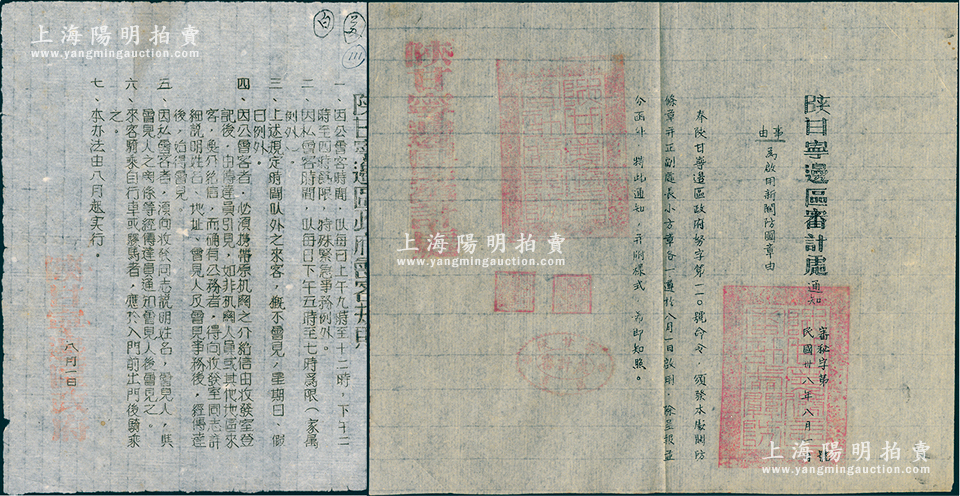 上海陽明拍賣
www.yangmingauction.com
陕甘寧邊區審計處 通知
審秘字第 號
民國卅八年八月一日
事由
為啟用新關防圖章由
奉陕甘寧邊區政府努字第一一〇號命令,頒發本處關防
條章并正副處長小方章各一遵於八月一日啟用,除呈报並
分函外,特此通知,并附樣式,希即知照。
上海陽明拍賣
www.yangmingauction.com
上海陽明拍賣
www.yangmingauction.com
陕甘寧邊區政府會客規則
一、因公會客時間,以每日上午九時至十二時,下午二
時至四時為限,特殊緊急事務例外。
二、因私會客時間,以每日下午五時至七時為限(家属
例外)。
三、上述規定時間以外之來客,概不會見,星期日、假
日例外。
四、因公會客者,必須携帶原机關之介紹信由收發室登
記後,由傳達員引見,如非机關人員或其他地區來
客,無介紹信,而確有公務者,得向收發室同志詳
細説明姓名、地址、會見人及會見事務後,經傳達
後,始得會見。
五、因私會客者,須向收發同志説明姓名,會見人,與
會見人之関係等經傳達員通知會見人後會見之。
六、來客騎乘自行車或騾馬者,應於入門前出門後騎乘
之。
七、本办法由八月起实行。
八月一日
上海陽明拍賣
www.yangmingauction.com